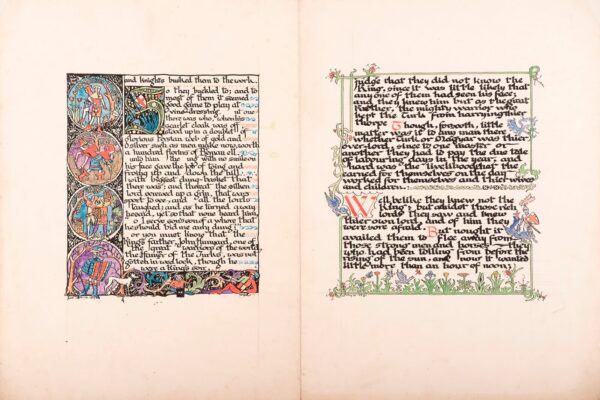 and knights busked them to the work.
So they buckled to; and to
most of them it seemed
good game to play at
vine-dressing. But one
there was who, when his
scarlet cloak was off
stood up in a doublet of
glorious Persian web of gold and
silver such as men make now, worth
a hundred florins the ell.
unto him the King with no smile on
his face gave the job of toing and
froing up and down the hill
with the biggest dung-basket that
there was; and thereat the silken
lord screwed up a grin, that was
sport to see, and all the lords
laughed; and as he turned away
he said, yet so that none heard him,
Do I serve sons son of a whore that
he should bid me carry dung?
For you must know that the
King's father, John Hunyad, one of
the great warriors of the world,
the Hammer of the Turks, was not
gotten in wedlock, though he
were a King's son.
judge that they did not know the
King, since it was little likely that
any one of them had seen his face;
and they knew him but as the great
Father, the mighty warrior who
kept the Turk from harrying their
thorpe
Though, forsooth, little
matter was it to any man there
whether Turk or Magyar was their
over-lord, since to one master or
another they had to pay the due tale
of labouring days in the year, and
hard was the livelihood that they
earned for themselves on the days
worked for themselves and their wives
and children.
Well, belike they knew not the
King; but amidst those rich
lords they saw and knew
their own lord, and of him they
were sore afraid. But nought it
availed them to flee away from
those strong men and horses - they
who had been toiling from before the
rising of the sun, and now it wanted
little more than an hour of noon;